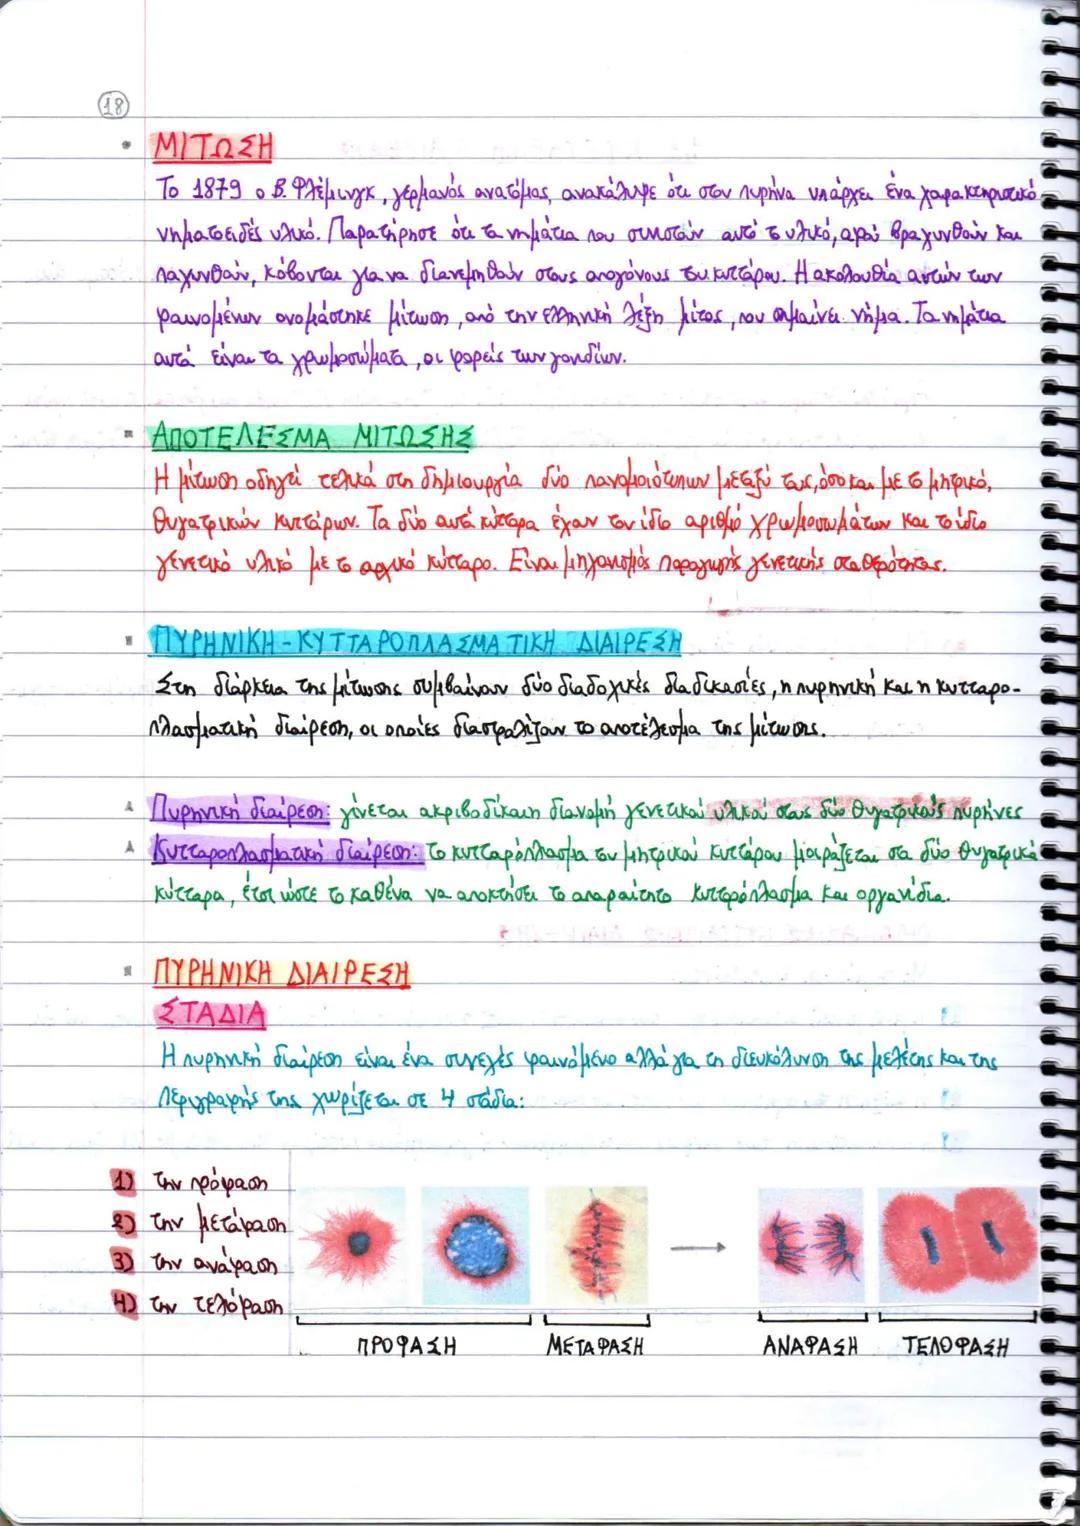 18
ΜΙΤΩΣΗ
Το 1879 ο Β. Φλέμινγκ, γερμανός ανατόμος, ανακάλυψε ότι στον πυρήνα υπάρχει ένα χαρακτηριστικό
νηματοειδές υλικό. Παρατήρησε ότι τα νημάτια που συνιστούν αυτό το υλικό, αφού βραχυνθούν και
παχυνθούν, κόβονται για να διανεμηθούν στους απογόνους του κυττάρου. Η ακολουθία αυτών των
φαινομένων ονομάστηκε μίτωση, από την ελληνική λέξη μίτος, που σημαίνει νήμα. Τα νημάτια
αυτά είναι τα χρωμοσώματα, οι φορείς των γονιδίων.
ΑΠΟΤΕΛΕΣΜΑ ΜΙΤΩΣΗΣ
Η μίτωση οδηγεί τελικά στη δημιουργία δύο πανομοιότυπων μεταξύ τους, όσο και με το μητρικό,
θυγατρικών κυττάρων. Τα δύο αυτά κύτταρα έχουν τον ίδιο αριθμό χρωμοσωμάτων και το ίδιο
γενετικό υλικό με το αρχικό κύτταρο. Είναι μηχανισμός παραγωγής γενετικής σταθερότητας.
ΠΥΡΗΝΙΚΗ - ΚΥΤΤΑΡΟΠΛΑΣΜΑΤΙΚΗ ΔΙΑΙΡΕΣΗ
Στη διάρκεια της μίτωσης συμβαίνουν δύο διαδοχικές διαδικασίες, η πυρηνική και η κυτταρο-
πλασματική διαίρεση, οι οποίες διασφαλίζουν το αποτέλεσμα της μίτωσης.
Πυρηνική διαίρεση: γίνεται ακριβοδίκαιη διανομή γενετικού υλικού στους δύο θυγατρικούς πυρήνες
Κυτταροπλασματική διαίρεση: το κυτταρόπλασμα του μητρικού κυττάρου μοιράζεται στα δύο θυγατρικά
κύτταρα, έτσι ώστε το καθένα να αποκτήσει το απαραίτητο κυτταρόπλασμα και οργανίδια.
ΠΥΡΗΝΙΚΗ ΔΙΑΙΡΕΣΗ
ΣΤΑΔΙΑ
Η πυρηνική διαίρεση είναι ένα συνεχές φαινόμενο αλλά για τη διευκόλυνση της μελέτης και της
περιγραφής της χωρίζεται σε 4 στάδια:
1) την πρόφαση
2) την μετάφαση
3) την ανάφαση
4) την τελόφαση
ΠΡΟΦΑΣΗ ΜΕΤΑΦΑΣΗ ΑΝΑΦΑΣΗ ΤΕΛΟΦΑΣΗ